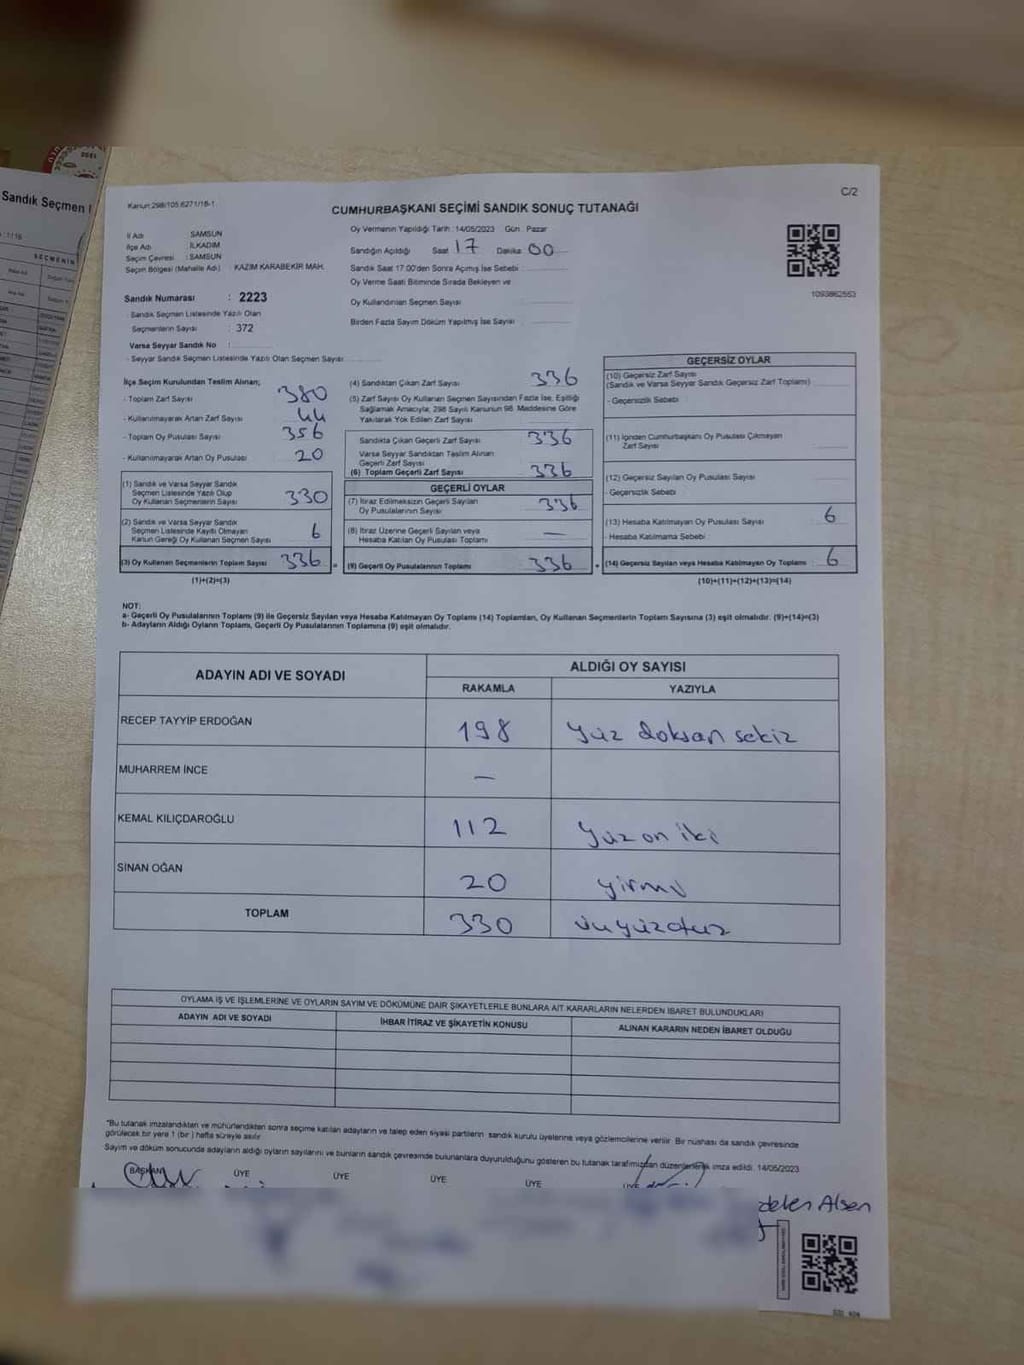 Sandık Seçmen
SEÇMENİN
C/2
Kanun:298/105,6271/18-1
CUMHURBAŞKANI SEÇİMİ SANDIK SONUÇ TUTANAĞI
İl Adı : SAMSUN
İlçe Adı : İLKADIM
Seçim Çevresi : SAMSUN
Seçim Bölgesi (Mahalle Adı) : KAZIM KARABEKİR MAH.
Oy Vermenin Yapıldığı Tarih : 14/05/2023 Gün : Pazar
Sandığın Açıldığı Saat : 17 Dakika : 00
Sandık Saat 17.00'den Sonra Açımış İse Sebebi :
Oy Verme Saati Bitiminde Sırada Bekleyen ve
Oy Kullandırılan Seçmen Sayısı
Birden Fazla Sayım Döküm Yapılmış İse Sayısı :
1093862553
Sandık Numarası : 2223
- Sandık Seçmen Listesinde Yazılı Olan
Seçmenlerin Sayısı : 372
Varsa Seyyar Sandık No :
- Seyyar Sandık Seçmen Listesinde Yazılı Olan Seçmen Sayısı :
İlçe Seçim Kurulundan Teslim Alınan;
- Toplam Zarf Sayısı : 380
- Kullanılmayarak Artan Zarf Sayısı : 44
- Toplam Oy Pusulası Sayısı : 356
- Kullanılmayarak Artan Oy Pusulası : 20
(1) Sandık ve Varsa Seyyar Sandık
Seçmen Listesinde Yazılı Olup
Oy Kullanan Seçmenlerin Sayısı : 330
(2) Sandık ve Varsa Seyyar Sandık
Seçmen Listesinde Kayıtlı Olmayan
Kanun Gereği Oy Kullanan Seçmen Sayısı : 6
(3) Oy Kullanan Seçmenlerin Toplam Sayısı : 336
(1)+(2)=(3)
(4) Sandıktan Çıkan Zarf Sayısı : 336
(5) Zarf Sayısı Oy Kullanan Seçmen Sayısından Fazla İse, Eşitliği
Sağlamak Amacıyla; 298 Sayılı Kanunun 98. Maddesine Göre
Yakılarak Yok Edilen Zarf Sayısı :
Sandıkta Çıkan Geçerli Zarf Sayısı : 336
Varsa Seyyar Sandıktan Teslim Alınan
Geçerli Zarf Sayısı :
(6) Toplam Geçerli Zarf Sayısı : 336
GEÇERLİ OYLAR
(7) İtiraz Edilmeksizin Geçerli Sayılan
Oy Pusulalarının Sayısı : 336
(8) İtiraz Üzerine Geçerli Sayılan veya
Hesaba Katılan Oy Pusulası Toplamı : —
(9) Geçerli Oy Pusulalarının Toplamı : 336
GEÇERSİZ OYLAR
(10) Geçersiz Zarf Sayısı
(Sandık ve Varsa Seyyar Sandık Geçersiz Zarf Toplamı) :
- Geçersizlik Sebebi :
(11) İçinden Cumhurbaşkanı Oy Pusulası Çıkmayan
Zarf Sayısı :
(12) Geçersiz Sayılan Oy Pusulası Sayısı :
- Geçersizlik Sebebi :
(13) Hesaba Katılmayan Oy Pusulası Sayısı : 6
- Hesaba Katılmama Sebebi :
(14) Geçersiz Sayılan veya Hesaba Katılmayan Oy Toplamı : 6
(10)+(11)+(12)+(13)=(14)
NOT:
a- Geçerli Oy Pusulalarının Toplamı (9) ile Geçersiz Sayılan veya Hesaba Katılmayan Oy Toplamı (14) Toplamları, Oy Kullanan Seçmenlerin Toplam Sayısına (3) eşit olmalıdır. (9)+(14)=(3)
b- Adayların Aldığı Oyların Toplamı, Geçerli Oy Pusulalarının Toplamına (9) eşit olmalıdır.
ADAYIN ADI VE SOYADI ALDIĞI OY SAYISI
RAKAMLA YAZIYLA
RECEP TAYYİP ERDOĞAN 198 yüz doksan sekiz
MUHARREM İNCE —
KEMAL KILIÇDAROĞLU 112 yüz on iki
SİNAN OĞAN 20 yirmi
TOPLAM 330
OYLAMA İŞ VE İŞLEMLERİNE VE OYLARIN SAYIM VE DÖKÜMÜNE DAİR ŞİKAYETLERLE BUNLARA AİT KARARLARIN NELERDEN İBARET BULUNDUKLARI
ADAYIN ADI VE SOYADI İHBAR İTİRAZ VE ŞİKAYETİN KONUSU ALINAN KARARIN NEDEN İBARET OLDUĞU
"Bu tutanak imzalandıktan ve mühürlendikten sonra seçime katılan adayların ve talep eden siyasi partilerin sandık kurulu üyelerine veya gözlemcilerine verilir. Bir nüshası da sandık çevresinde
görülecek bir yere 1 (bir) hafta süreyle asılır.
Sayım ve döküm sonucunda adayların aldığı oyların sayılarını ve bunların sandık çevresinde bulunanlara duyurulduğunu gösteren bu tutanak tarafımızdan düzenlenerek imza edildi. 14/05/2023
BAŞKAN ÜYE ÜYE ÜYE ÜYE ÜYE